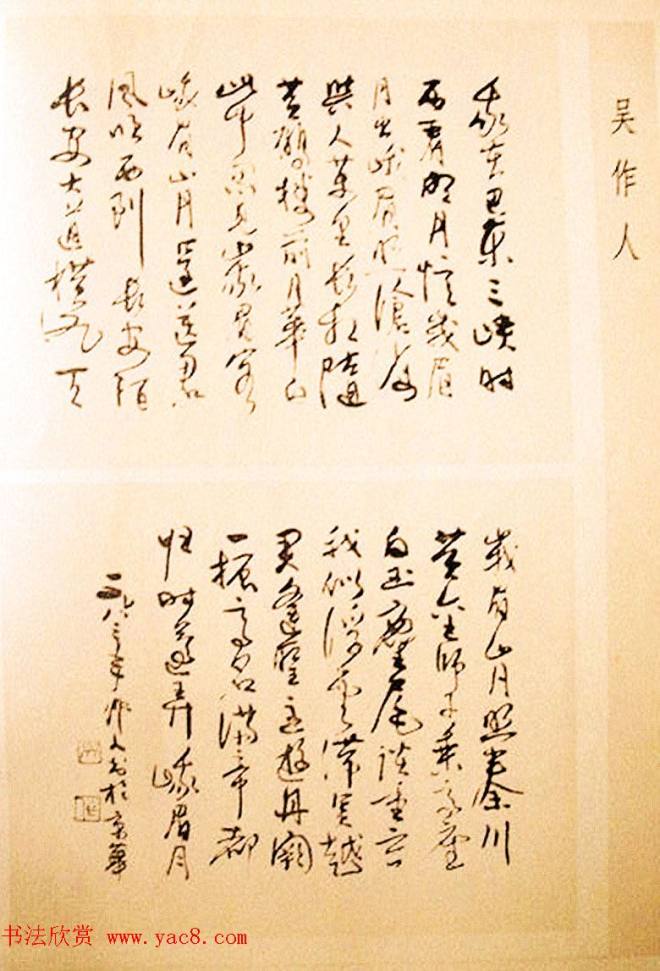 吴作人
我在巴東三峡时
西看明月憶峨眉
月出峨眉照滄海
與人萬里長相隨
黄鶴樓前月華白
此中忽見峨眉客
峨眉山月還送君
風吹西到長安陌
長安大道横九天
峨眉山月照秦川
黄金師子乘高座
白玉麈尾談重玄
我似浮雲滯吴越
君逢聖主遊丹闕
一振高名滿帝都
归时還弄峨眉月
一九八三年作人书於京華
书法欣赏 www.yac8.com